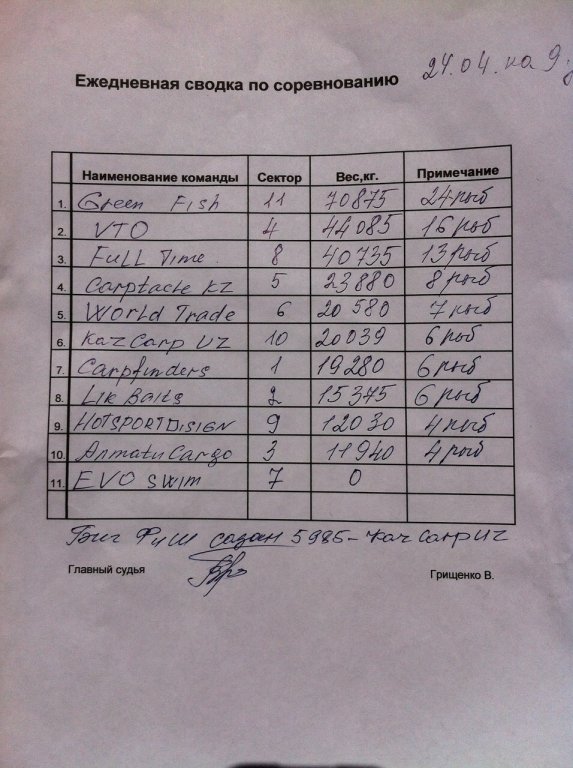 24.04. на 9
Ежедневная сводка по соревнованию
Наименование команды Сектор Вес,кг. Примечание
1. Green Fish 11 70875 24 рыб
2. VTO 4 44085 16 рыб
3. Full Time 8 40735 13 рыб
4. Carptacle KZ 5 23880 8 рыб
5. World Trade 6 20580 7 рыб
6. Kaz Carp UZ 10 20039 6 рыб
7. Carpfinders 1 19280 6 рыб
8. Lik Baits 2 15375 6 рыб
9. HOTSPORTDISIGN 9 12030 4 рыб
10. Armatu Cargo 3 11940 4 рыб
11. EVO swim 7 0
Биг Фиш сазан 5985- Kaz Carp UZ
Главный судья Грищенко В.